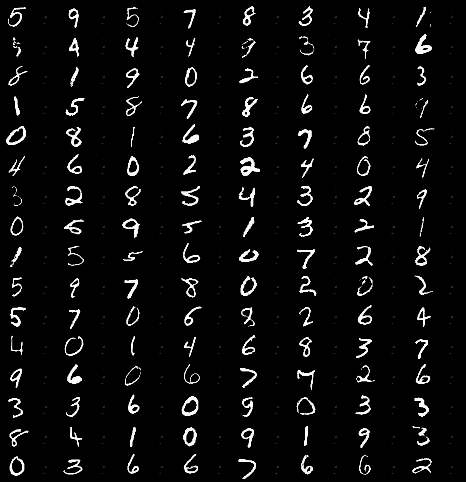 5 9 5 7 8 3 4 1
5 4 4 4 9 3 7 6
8 1 9 0 2 6 6 3
1 5 8 7 8 6 6 9
0 8 1 6 3 7 8 5
4 6 0 2 2 4 0 4
3 2 8 5 4 3 2 9
0 5 9 5 1 3 2 1
1 5 5 6 0 7 2 8
5 9 7 8 0 2 0 2
5 7 0 6 8 2 6 4
4 0 1 4 6 8 3 7
9 6 0 6 7 7 2 6
3 3 6 0 9 0 3 3
8 4 1 0 9 1 9 3
0 3 6 6 7 6 6 2